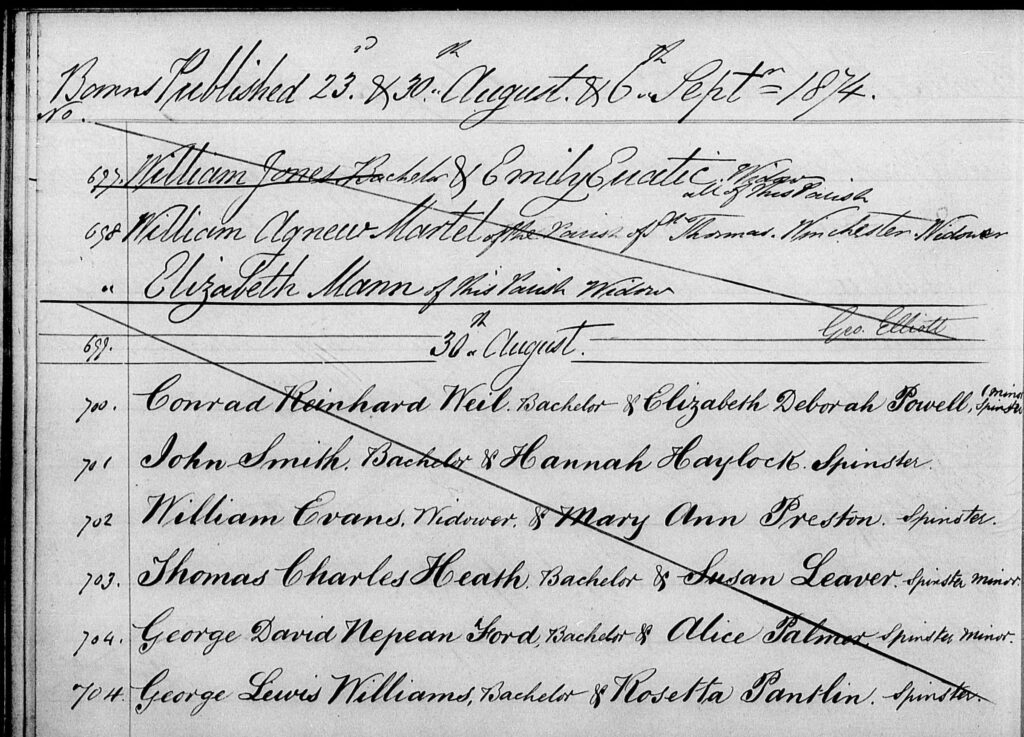 Banns Published 23.rd & 30.th August. & 6.th Septr 1874.
No.
697. William Jones Bachelor & Emily Euatic. Widow
all of this Parish
698 William Agnew Martel of the Parish of St Thomas. Winchester. Widower
" Elizabeth Mann of this Parish Widow
Geo. Elliott
699. 30th August.
700. Conrad Reinhard Weil. Bachelor & Elizabeth Deborah Powell, (minor Spinster
701 John Smith. Bachelor & Hannah Haylock. Spinster.
702 William Evans, Widower. & Mary Ann Preston. Spinster.
703. Thomas Charles Heath. Bachelor & Susan Leaver. Spinster minor.
704. George David Nepean Ford, Bachelor & Alice Palmer Spinster minor.
704. George Lewis Williams, Bachelor & Rosetta Pantlin. Spinster.